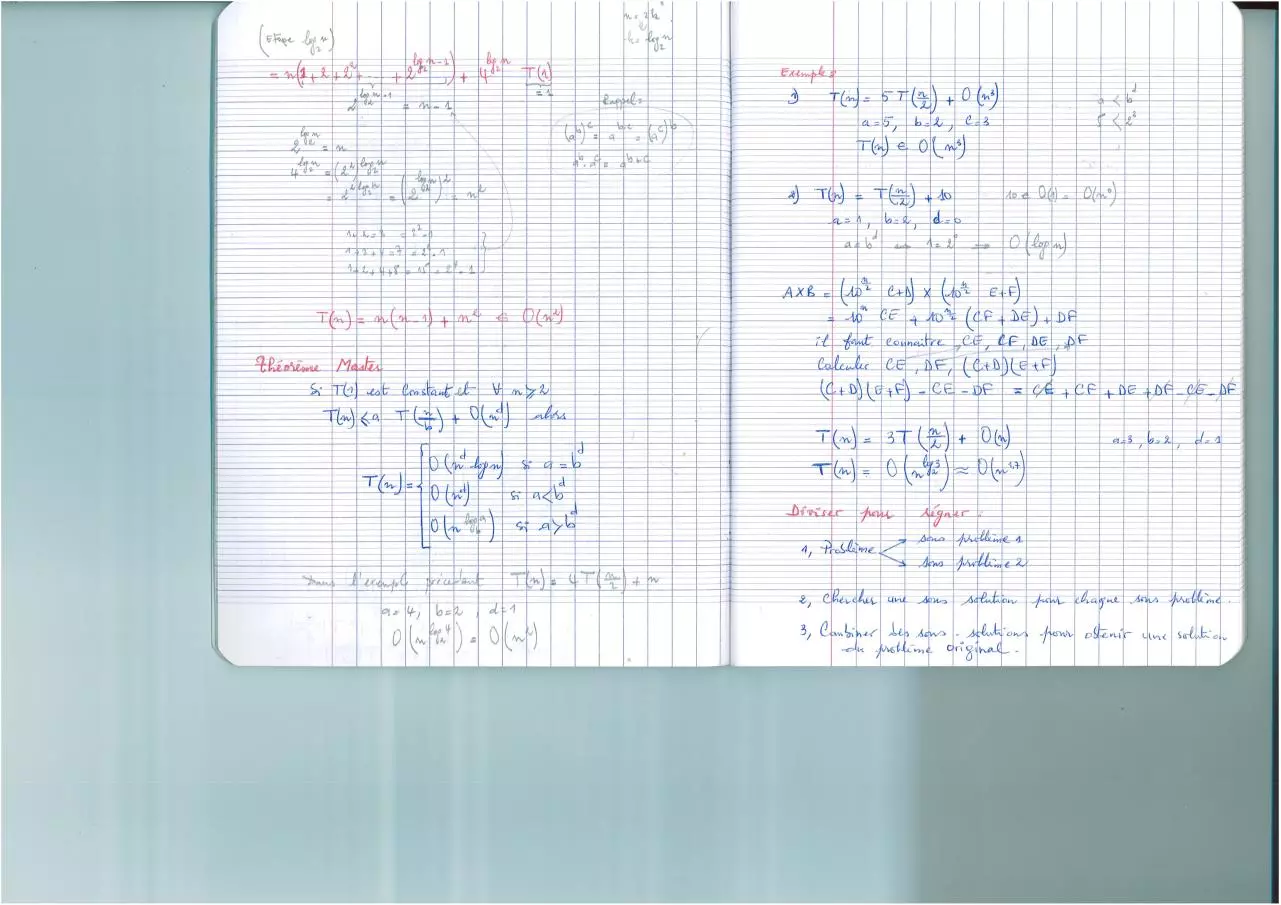 n = 2^k
k = log_2 n
(Etape log_2 n)
= n(1 + 2 + 2^2 + ... + 2^{log_2 n - 1}) + 4^{log_2 n} T(1)
= 1
2^{log_2 n} - 1 = n - 1
Rappel :
(a^b)^c = a^{b·c} = (a^c)^b
a^b · a^c = a^{b+c}
2^{log_2 n} = n
4^{log_2 n} = (2^2)^{log_2 n}
= 2^{2 log_2 n} = (2^{log_2 n})^2 = n^2
1+2+4 = 7 = 2^3 - 1
1+2+4+8 = 15 = 2^4 - 1
T(n) = n(n-1) + n^2 ∈ O(n^2)
Théorème Master
Si T(1) est constant et ∀ n ≥ 2
T(n) ≤ a T(n/b) + O(n^d) alors
T(n) = { O(n^d log n) si a = b^d
O(n^d) si a < b^d
O(n^{log_b a}) si a > b^d
Dans l'exemple précédent T(n) = 4T(n/2) + n
a=4, b=2, d=1
O(n^{log_2 4}) = O(n^2)
Exemples
1) T(n) = 5T(n/2) + O(n^3)
a < b^d
a=5, b=2, c=3
5 < 2^3
T(n) ∈ O(n^3)
2) T(n) = T(n/2) + 10 10 ∈ O(1) = O(n^0)
a=1, b=2, d=0
a = b^d 1 = 2^0 → O(log n)
A×B = (10^{n/2} C+D) × (10^{n/2} E+F)
= 10^n CE + 10^{n/2} (CF + DE) + DF
il faut connaitre CE, CF, DE, DF
Calculer CE, DF, (C+D)(E+F)
(C+D)(E+F) - CE - DF = CE + CF + DE + DF - CE - DF
T(n) = 3T(n/2) + O(n) a=3, b=2, d=1
T(n) = O(n^{log_2 3}) ≈ O(n^{1,7})
Diviser pour régner :
1, Problème
sous problème 1
sous problème 2
2, Chercher une sous solution pour chaque sous problème.
3, Combiner les sous-solutions pour obtenir une solution
du problème original.